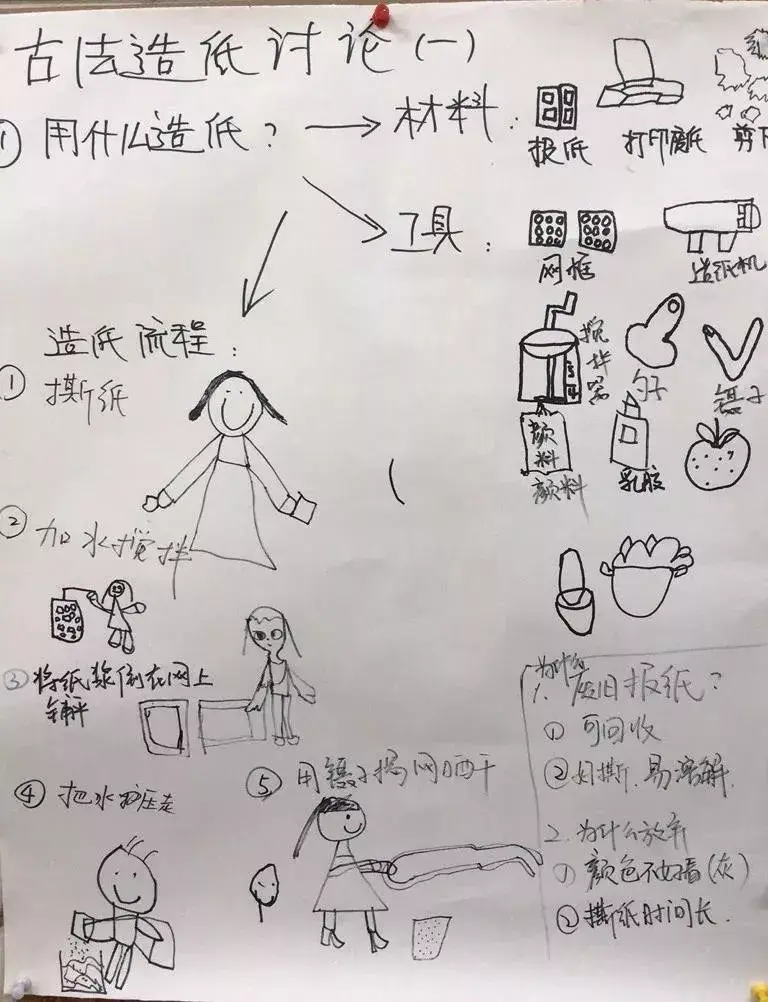 古法造纸讨论(一)
① 用什么造纸? → 材料:
报纸 打印废纸 剪下
工具:
网框 造纸机
搅拌器 勺子 镊子
颜料
颜料 乳胶
造纸流程:
① 撕纸
② 加水搅拌
③ 将纸浆倒在网上
铺平
④ 把水挤压走
⑤ 用镊子揭网晒干
为什么
1. 废旧报纸?
① 可回收
② 好撕.易溶解.
2. 为什么放弃
① 颜色不好看(灰)
② 撕纸时间长.